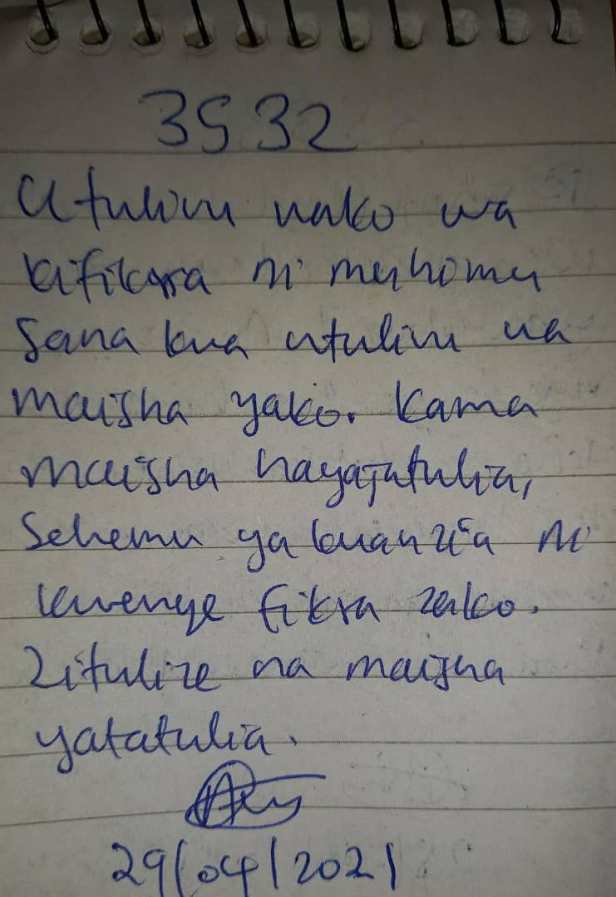 3532
Utulivu wako wa
kifikra ni muhimu
Sana kwa utulivu wa
maisha yako. Kama
maisha hayajatulia,
Sehemu ya kuanzia ni
kwenye fikra zako.
Zitulize na maisha
yatatulia.
29/04/2021